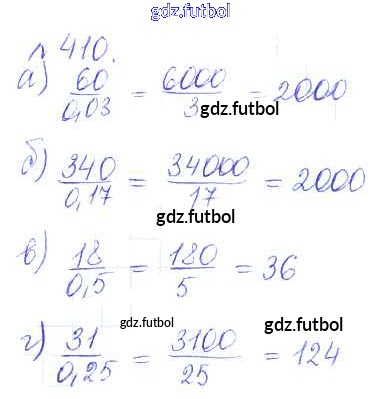 gdz.futbol
№ 410.
а) 60/0,03 = 6000/3 = 2000
gdz.futbol
б) 340/0,17 = 34000/17 = 2000
gdz.futbol
в) 18/0,5 = 180/5 = 36
gdz.futbol gdz.futbol
г) 31/0,25 = 3100/25 = 124